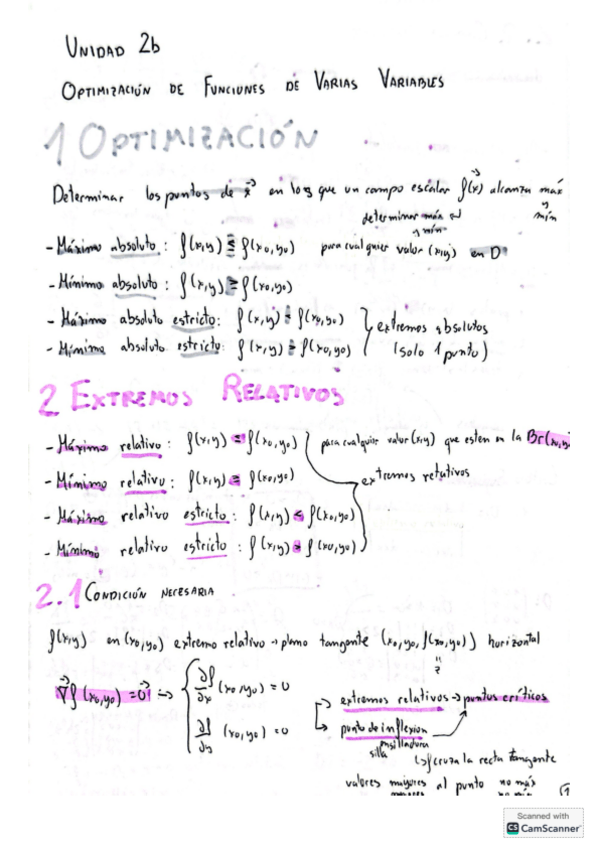 UNIDAD 2b
OPTIMIZACIÓN DE FUNCIONES DE VARIAS VARIABLES
1 OPTIMIZACIÓN
Determinar los puntos de x⃗ en los que un campo escalar f(x⃗) alcanza máx
determinar máx y mín
- Máximo absoluto: f(x,y) ≤ f(x0,y0) para cualquier valor (x,y) en D
- Mínimo absoluto: f(x,y) ≥ f(x0,y0)
- Máximo absoluto estricto: f(x,y) < f(x0,y0)
- Mínimo absoluto estricto: f(x,y) > f(x0,y0)
extremos absolutos
(solo 1 punto)
2 EXTREMOS RELATIVOS
- Máximo relativo: f(x,y) ≤ f(x0,y0) para cualquier valor (x,y) que esten en la Br(x0,y0
- Mínimo relativo: f(x,y) ≥ f(x0,y0)
extremos relativos
- Máximo relativo estricto: f(x,y) < f(x0,y0)
- Mínimo relativo estricto: f(x,y) > f(x0,y0)
2.1 CONDICIÓN NECESARIA
f(x,y) en (x0,y0) extremo relativo → plano tangente (x0,y0,f(x0,y0)) horizontal
∇⃗f(x0,y0) = 0⃗ → { ∂f/∂x (x0,y0) = 0
∂f/∂y (x0,y0) = 0
extremos relativos → puntos críticos
punto de inflexion
silla
cruza la recta tangente
valores mayores al punto no máx
Scanned with
CS CamScanner